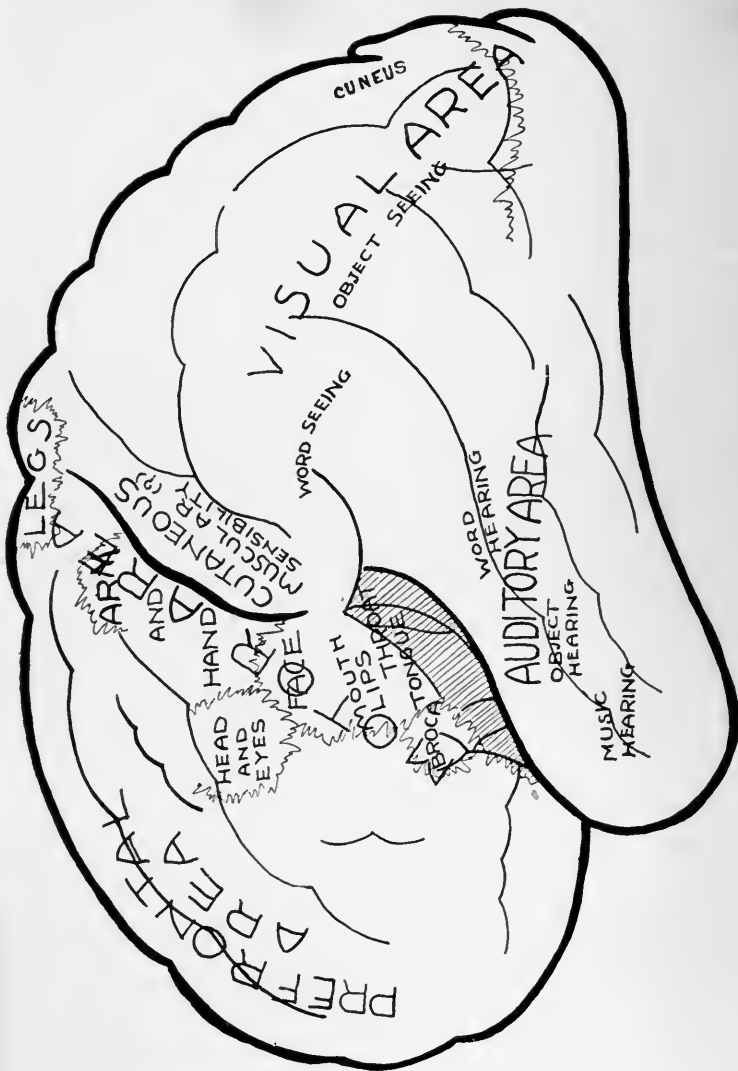 PREFRONTAL
AREA
HEAD
AND
EYES
LEGS
ARM
AND
HAND
FACE
MOUTH
LIPS
THROAT
TONGUE
BROCA
MOTOR AREA
CUTANEOUS
MUSCULAR (?)
SENSIBILITY
WORD SEEING
VISUAL AREA
OBJECT SEEING
CUNEUS
WORD
HEARING
AUDITORY AREA
OBJECT
HEARING
MUSIC
HEARING